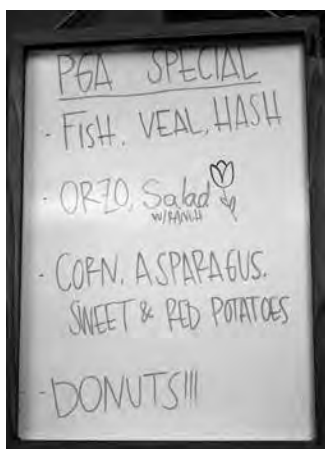 PGA SPECIAL
· FISH. VEAL, HASH
· ORZO, Salad
W/RANCH
· CORN. ASPARAGUS.
SWEET & RED POTATOES
· DONUTS!!!